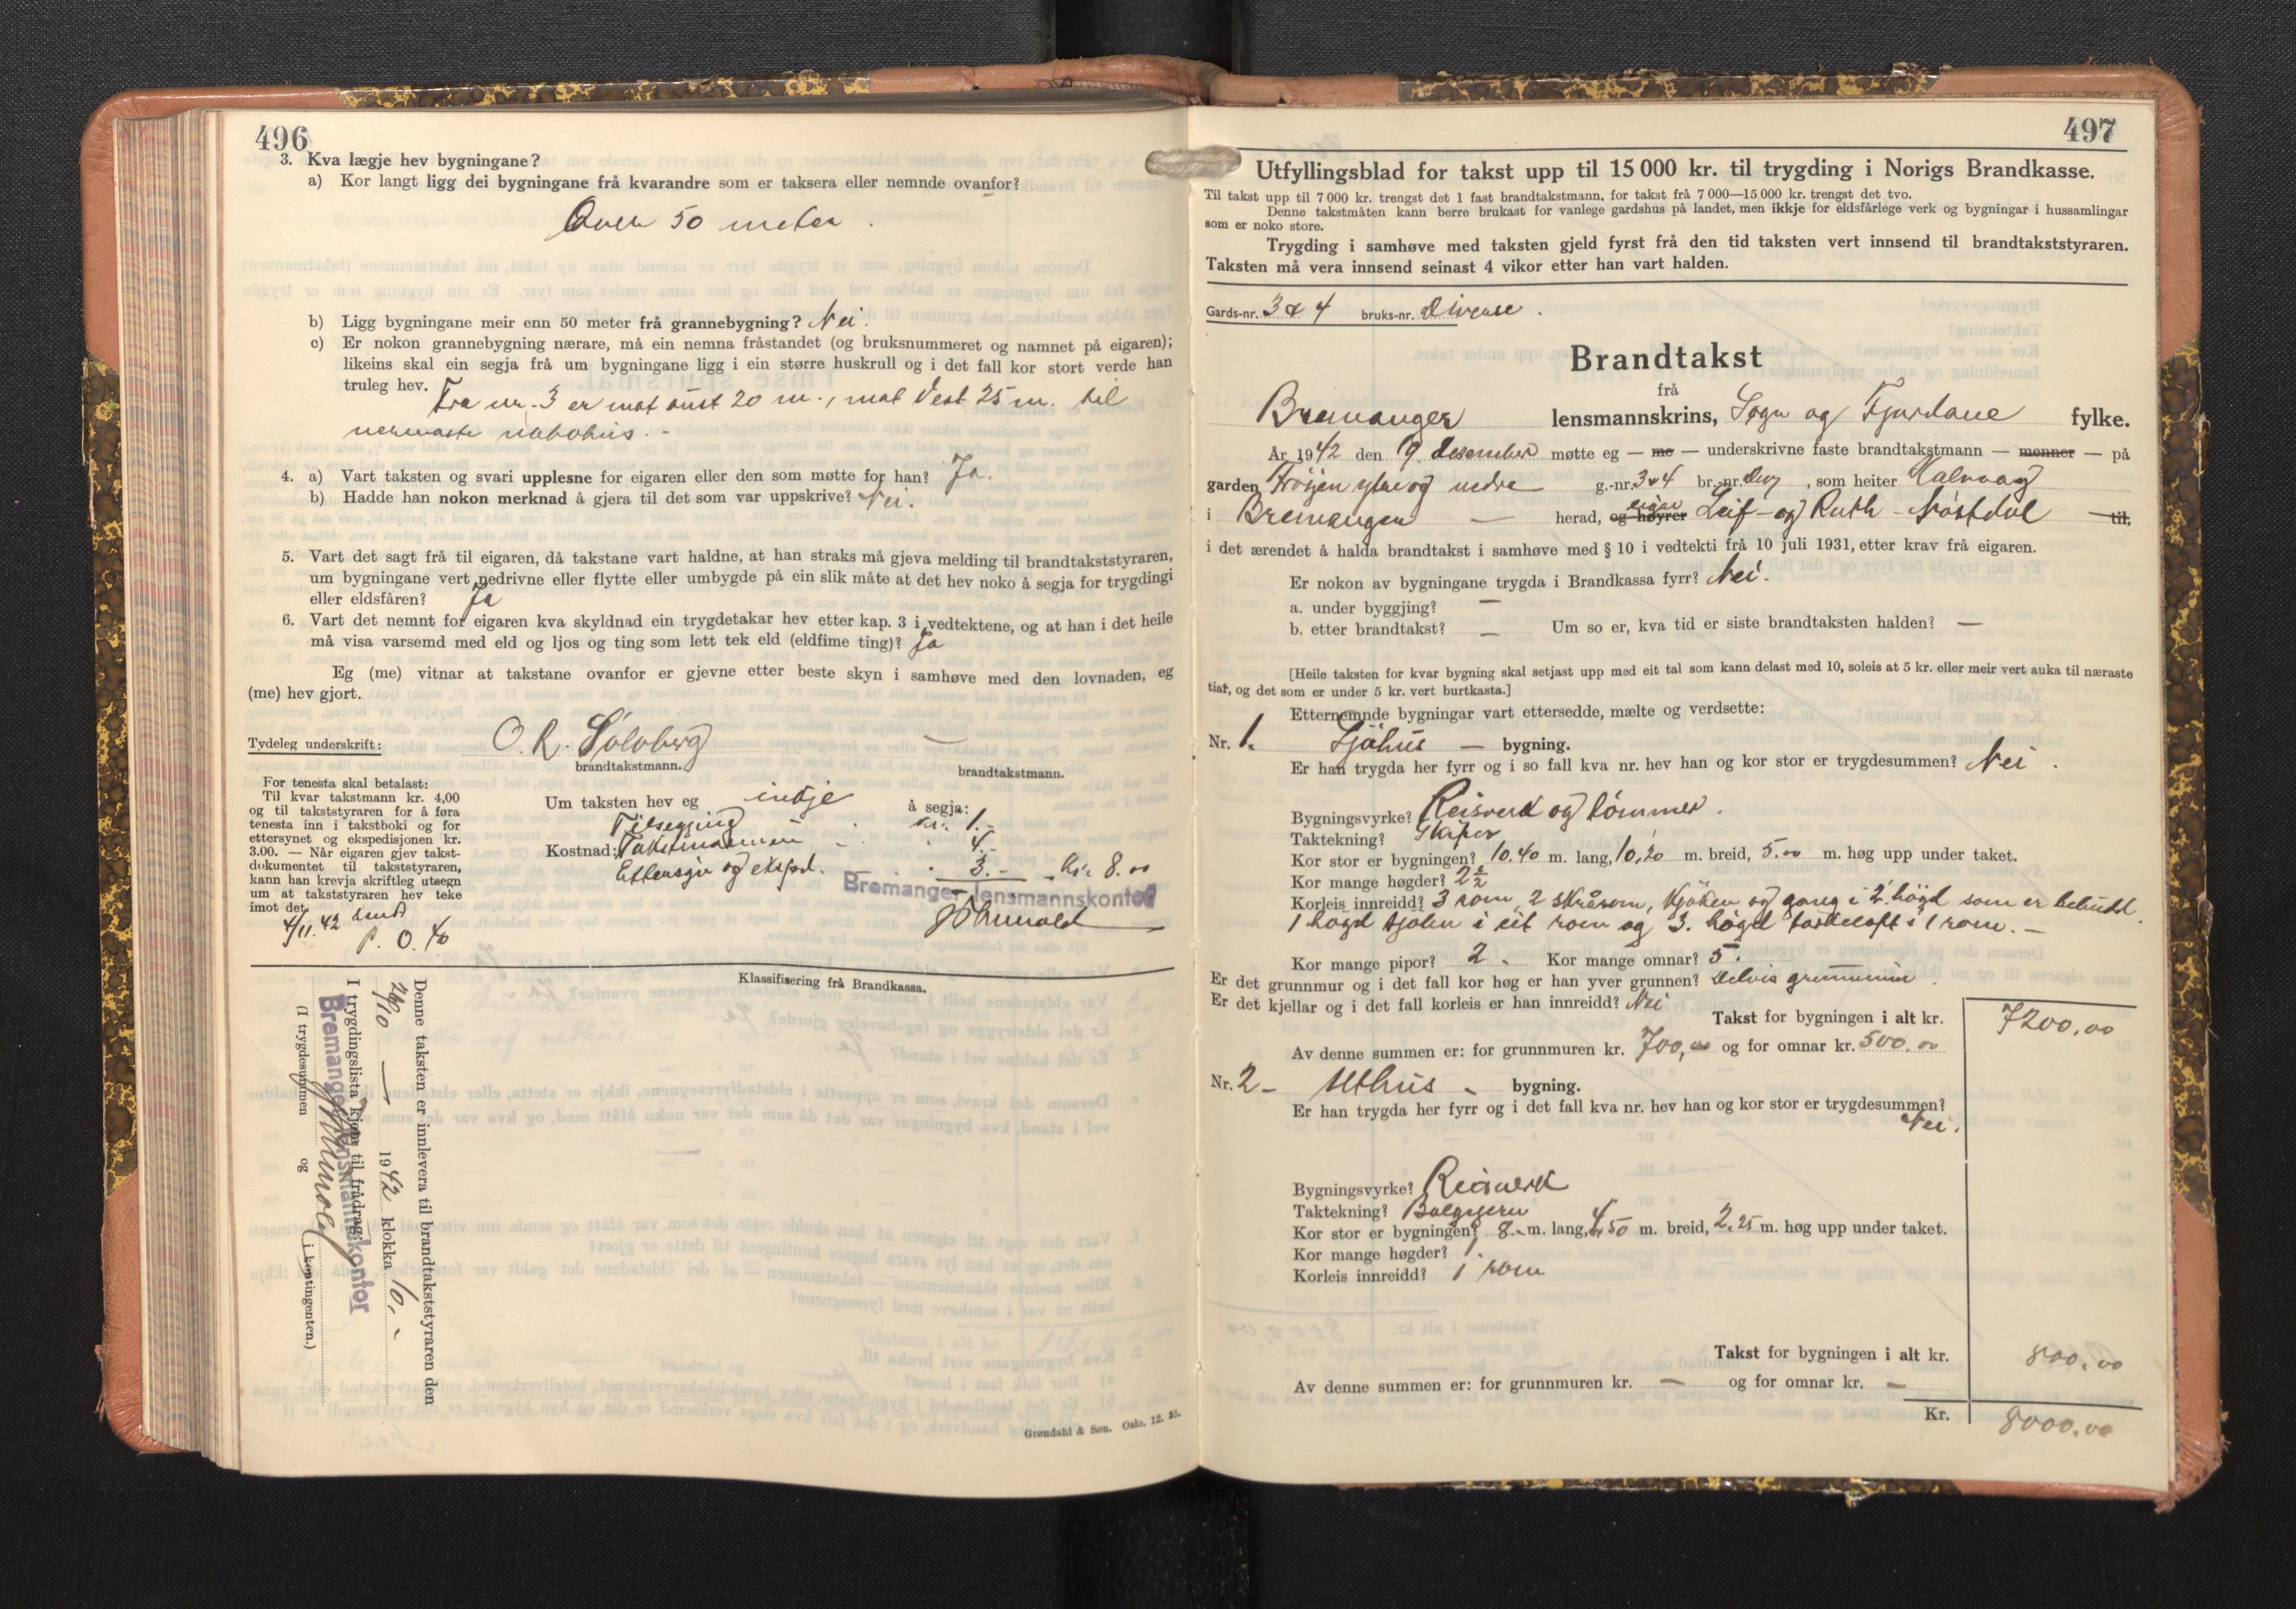 496
3. Kva lægje hev bygningane?
a) Kor langt ligg dei bygningane frå kvarandre som er taksera eller nemnde ovanfor?
Over 50 meter.
b) Ligg bygningane meir enn 50 meter frå grannebygning? Nei.
c) Er nokon grannebygning nærare, må ein nemna fråstandet (og bruksnummeret og namnet på eigaren);
likeins skal ein segja frå um bygningane ligg i ein større huskrull og i det fall kor stort verde han
truleg hev. Fra nr. 3 er mot aust 20 m., mot Vest 25 m. til
nermaste nabohus. -
4. a) Vart taksten og svari upplesne for eigaren eller den som møtte for han? Ja.
b) Hadde han nokon merknad å gjera til det som var uppskrive? Nei.
5. Vart det sagt frå til eigaren, då takstane vart haldne, at han straks må gjeva melding til brandtakststyraren,
um bygningane vert nedrivne eller flytte eller umbygde på ein slik måte at det hev noko å segja for trygdingi
eller eldsfåren? Ja
6. Vart det nemnt for eigaren kva skyldnad ein trygdetakar hev etter kap. 3 i vedtektene, og at han i det heile
må visa varsemd med eld og ljos og ting som lett tek eld (eldfime ting)? Ja
Eg (me) vitnar at takstane ovanfor er gjevne etter beste skyn i samhøve med den lovnaden, eg
(me) hev gjort.
Tydeleg underskrift: O. R. Solvberg —
brandtakstmann. brandtakstmann.
For tenesta skal betalast:
Til kvar takstmann kr. 4,00
og til takststyraren for å føra
tenesta inn i takstboki og for
ettersynet og ekspedisjonen kr.
3.00. — Når eigaren gjev takst-
dokumentet til takststyraren,
kann han krevja skriftleg utsegn
um at takststyraren hev teke
imot det.
4/11.42 sendt
P. O. 40
Um taksten hev eg intje å segja:
Tilsegjing kr. 1.-
Kostnad: Takstmannen - 4.-
Ettersyn og eksped. - 3.- - kr. 8.00
Bremanger lensmannskontor
Klassifisering frå Brandkassa.
Denne taksten er innlevera til brandtakststyraren den
24/10 — 1942 klokka 10.-
I trygdingslista kjem til frådrag:
Bremanger lensmannskontor
(I trygdesummen og i kontingenten.)
Grøndahl & Søn. Oslo. 12. 35.
497
Utfyllingsblad for takst upp til 15 000 kr. til trygding i Norigs Brandkasse.
Til takst upp til 7 000 kr. trengst det 1 fast brandtakstmann, for takst frå 7 000—15 000 kr. trengst det tvo.
Denne takstmåten kann berre brukast for vanlege gardshus på landet, men ikkje for eldsfårlege verk og bygningar i hussamlingar
som er noko store.
Trygding i samhøve med taksten gjeld fyrst frå den tid taksten vert innsend til brandtakststyraren.
Taksten må vera innsend seinast 4 vikor etter han vart halden.
Gards-nr. 3 & 4 bruks-nr. Diverse.
Brandtakst
frå
Bremanger lensmannskrins, Sogn og Fjordane fylke.
År 1942 den 19 desember møtte eg — me — underskrivne faste brandtakstmann — menner — på
garden ytre og nedre g.-nr. 3&4 br.-nr. div, som heiter Kalvaag
i Bremanger — herad, og høyrer eigar Leif - og Ruth - Nöstdal — til,
i det ærendet å halda brandtakst i samhøve med § 10 i vedtekti frå 10 juli 1931, etter krav frå eigaren.
Er nokon av bygningane trygda i Brandkassa fyrr? Nei.
a. under byggjing? —
b. etter brandtakst? — Um so er, kva tid er siste brandtaksten halden? —
[Heile taksten for kvar bygning skal setjast upp med eit tal som kann delast med 10, soleis at 5 kr. eller meir vert auka til næraste
tiar, og det som er under 5 kr. vert burtkasta.]
Etternemnde bygningar vart ettersedde, mælte og verdsette:
Nr. 1. Sjöhus — bygning.
Er han trygda her fyrr og i so fall kva nr. hev han og kor stor er trygdesummen? Nei.
Bygningsvyrke? Reisverk og tömmer.
Taktekning? Skifer
Kor stor er bygningen? 10.40 m. lang, 10,20 m. breid, 5.00 m. høg upp under taket.
Kor mange høgder? 2½
Korleis innreidd? 3 rom, 2 skrårom, kjöken og gang i 2. högd som er bebudd.
1 högd sjölen i eit rom og 3. högd i 1 rom. —
Kor mange pipor? 2. Kor mange omnar? 5.
Er det grunnmur og i det fall kor høg er han yver grunnen? Delvis grunnmur.
Er det kjellar og i det fall korleis er han innreidd? Nei
Takst for bygningen i alt kr. 7200.00
Av denne summen er: for grunnmuren kr. 700,00 og for omnar kr. 500.00
Nr. 2 - Uthus - bygning.
Er han trygda her fyrr og i det fall kva nr. hev han og kor stor er trygdesummen?
Nei.
Bygningsvyrke? Reisverk
Taktekning? Bølgejern
Kor stor er bygningen? 8.- m. lang, 4,50 m. breid, 2.25 m. høg upp under taket.
Kor mange høgder? 1.
Korleis innreidd? 1 rom
Takst for bygningen i alt kr. 800.00
Av denne summen er: for grunnmuren kr. — og for omnar kr. —
Kr. 8000.00